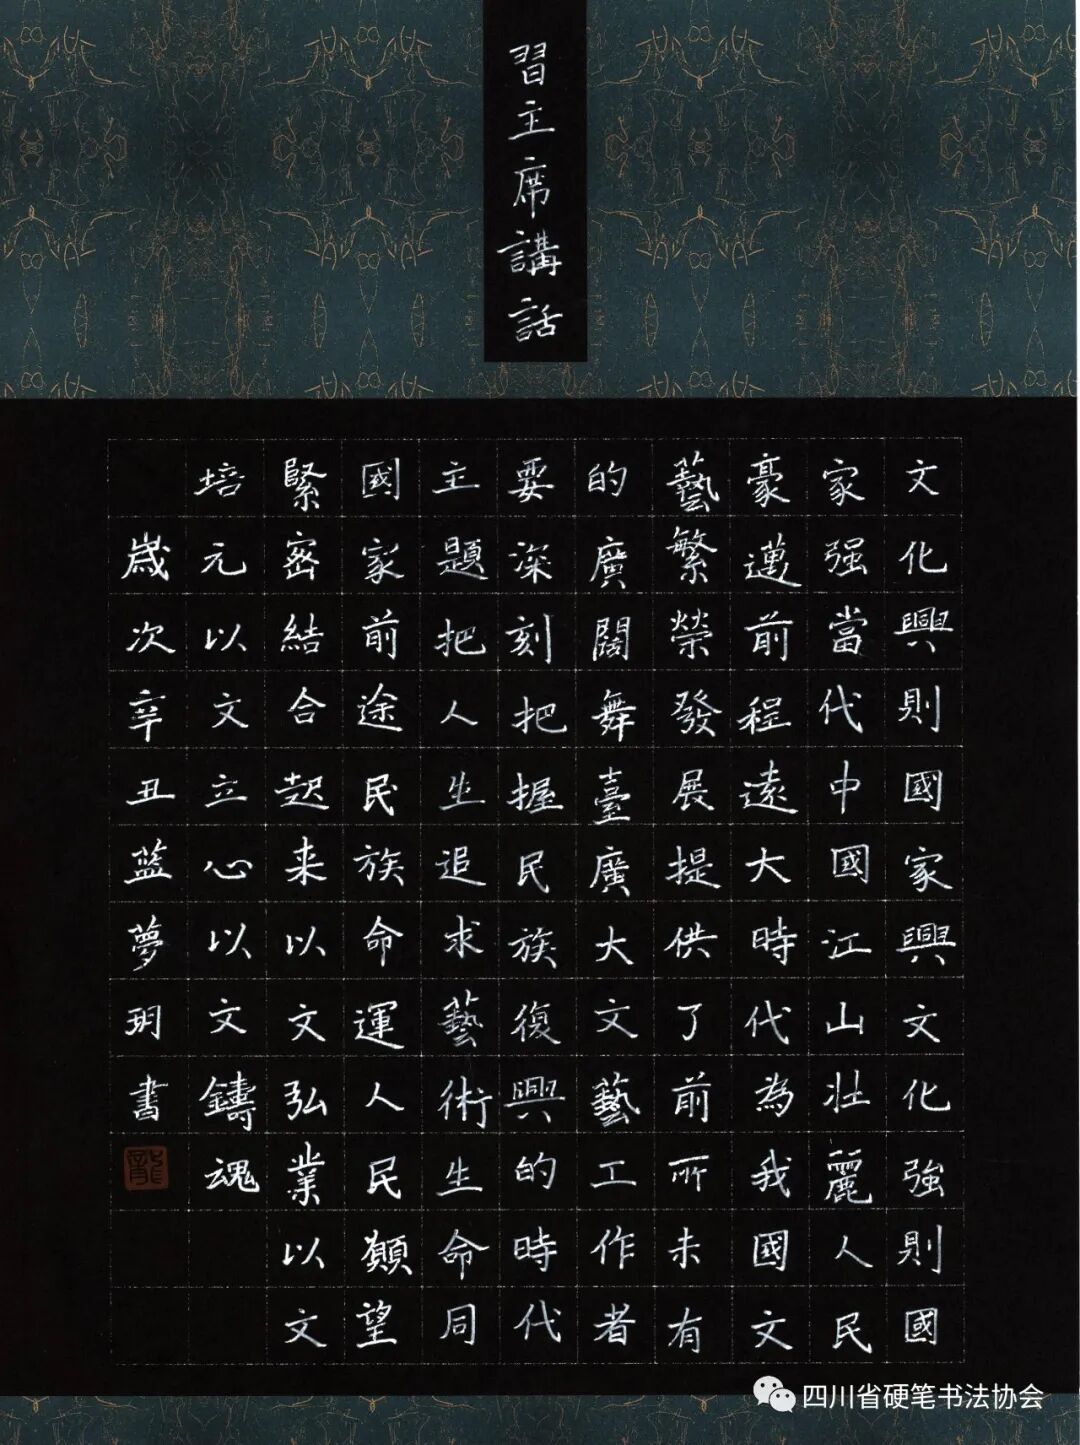 習主席講話
文化興則國家興文化強則國
家强當代中國江山壯麗人民
豪邁前程遠大時代為我國文
藝繁榮發展提供了前所未有
的廣闊舞臺廣大文藝工作者
要深刻把握民族復興的時代
主題把人生追求藝術生命同
國家前途民族命運人民願望
緊密結合起来以文弘業以文
培元以文立心以文鑄魂
歲次辛丑蓝夢玥書
四川省硬笔书法协会